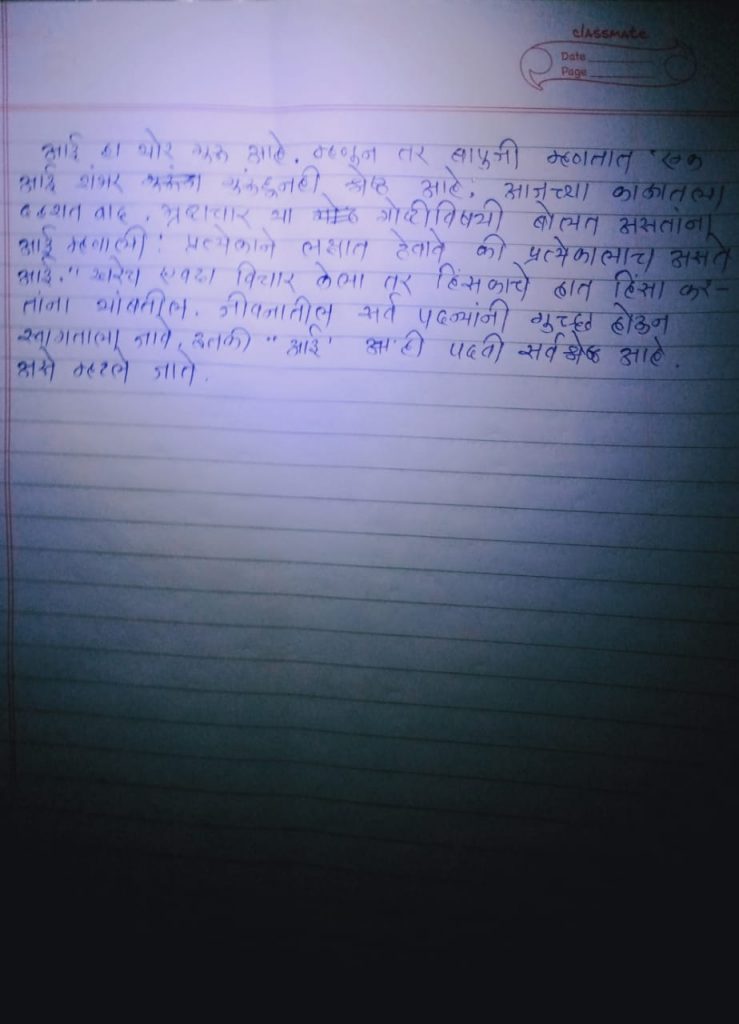 classmate
Date
Page
आई हा थोर गुरु आहे. म्हणून तर बापुजी म्हणतात "एक
आई शंभर गुरूंहूनही श्रेष्ठ आहे. आजच्या काळातला
दहशत वाद, भ्रष्टाचार या गोष्टीविषयी बोलत असतांना
आई म्हणाली: प्रत्येकाने लक्षात ठेवावे की प्रत्येकालाच असते
आई." खरेच एवढा विचार केला तर हिंसकाचे हात हिंसा कर-
तांना थांबतील. जीवनातील सर्व पदव्यांनी गुच्छ होऊन
स्वागताला जावे, इतकी "आई" ही पदवी सर्व श्रेष्ठ आहे.
असे म्हटले जाते.